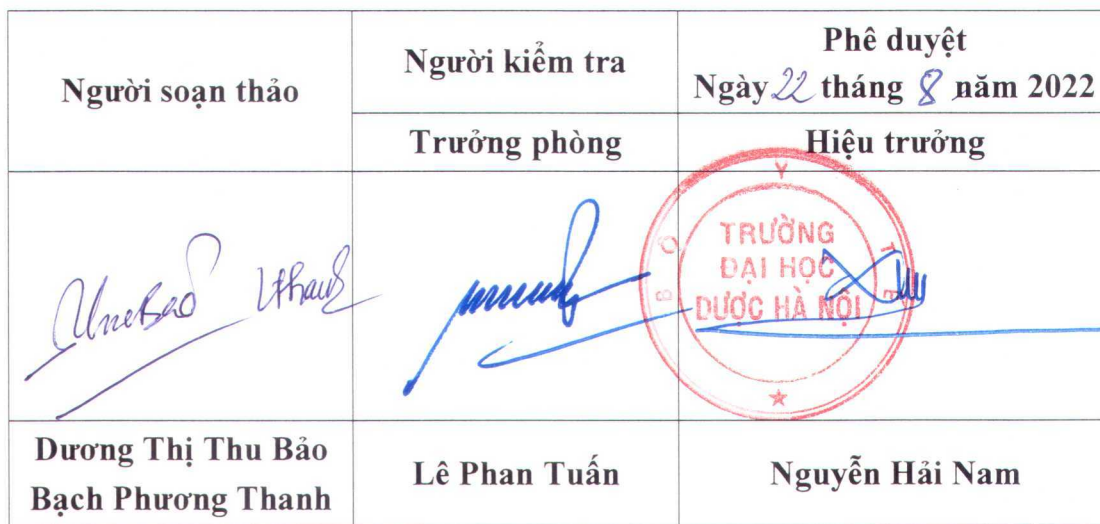 Người soạn thảo
Người kiểm tra
Phê duyệt
Ngày 22 tháng 8 năm 2022
Trưởng phòng
Hiệu trưởng
BỘ Y TẾ
TRƯỜNG
ĐẠI HỌC
DƯỢC HÀ NỘI
Dương Thị Thu Bảo
Bạch Phương Thanh
Lê Phan Tuấn
Nguyễn Hải Nam